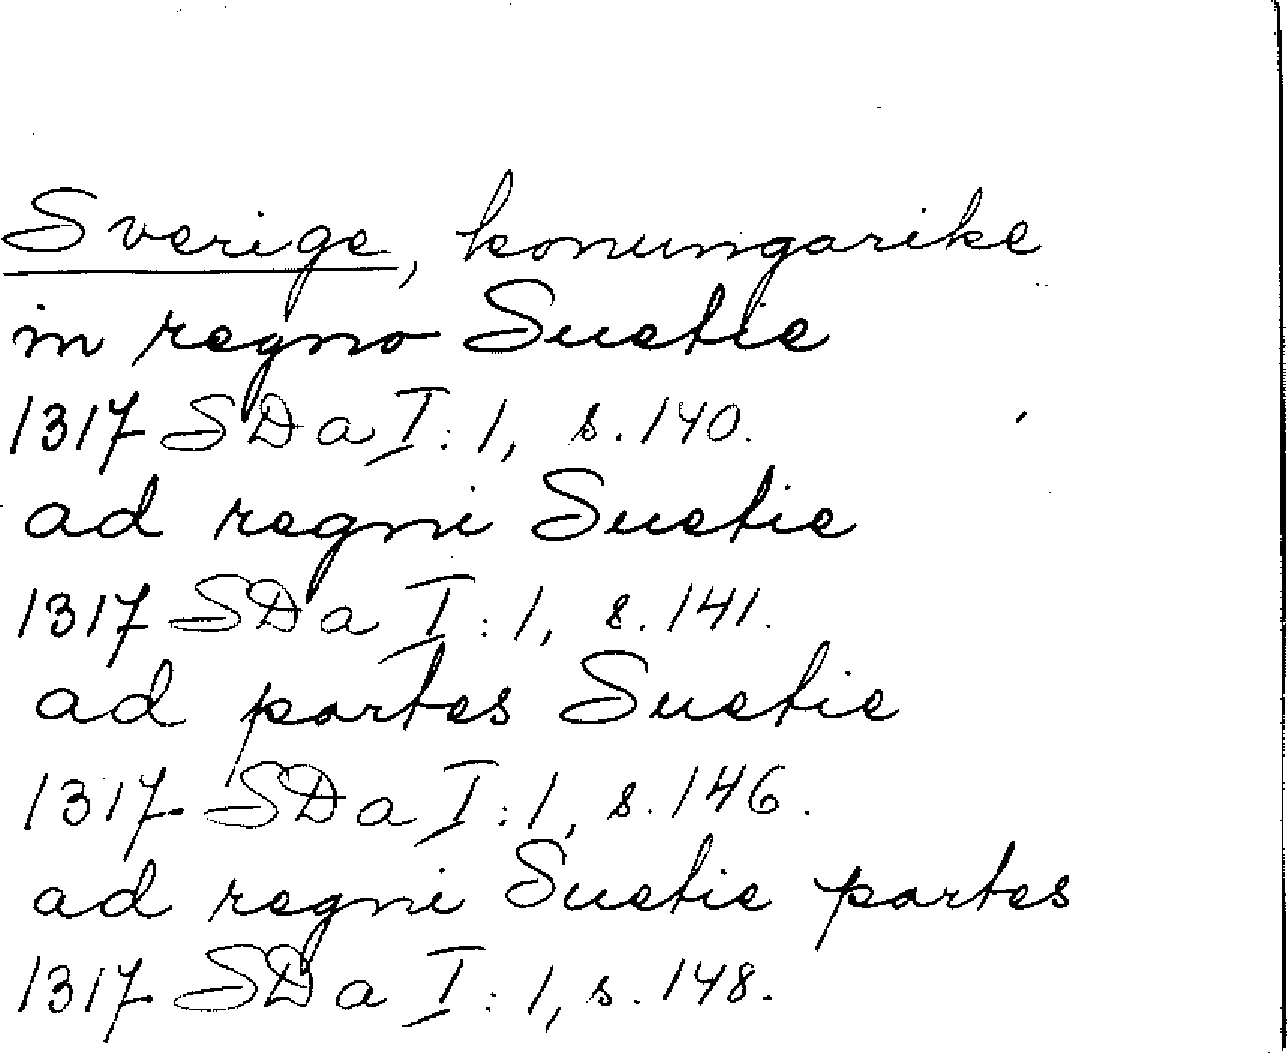 Sverige, konungarike
in regno Suetie
1317 SDa I:1, s.140.
ad regni Suetie
1317 SDa I:1, s.141.
ad partes Suetie
1317 SDa I:1, s.146.
ad regni Suetie partes
1317 SDa I:1, s.148.